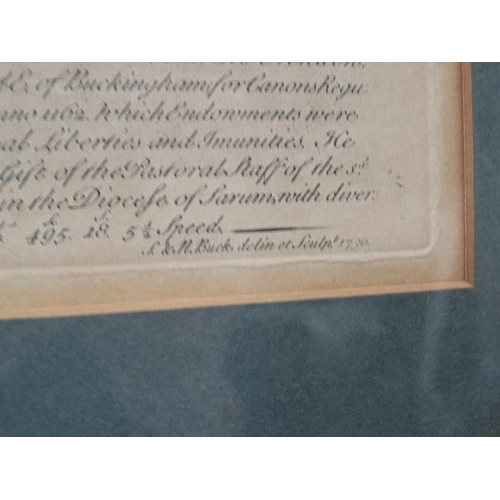 E. of Buckingham, for Canons Regu
nno 1162. Which Endowments were
al Liberties and Imunities. He
Gift of the Pastoral Staff of the sd.
in the Diocese of Sarum, with diver
£ 495. 18. 5½ Speed.
S. & N. Buck delin et Sculpt. 1730.